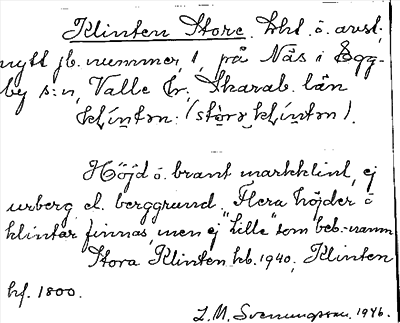 Klinten Store. hht. o. avst.,
nytt jb. nummer 1, på Näs i Ögg-
by s:n, Valle hr, Skarab. län
klíntən: (stòrə klíntən).
Höjd o. brant markklint, ej
urberg el. berggrund. Flera höjder o
klintar finnas, men ej "lille" som beb.-namn
Stora Klinten hb. 1940, Klinten
hf. 1800.
L. M. Svenungsson. 1946.